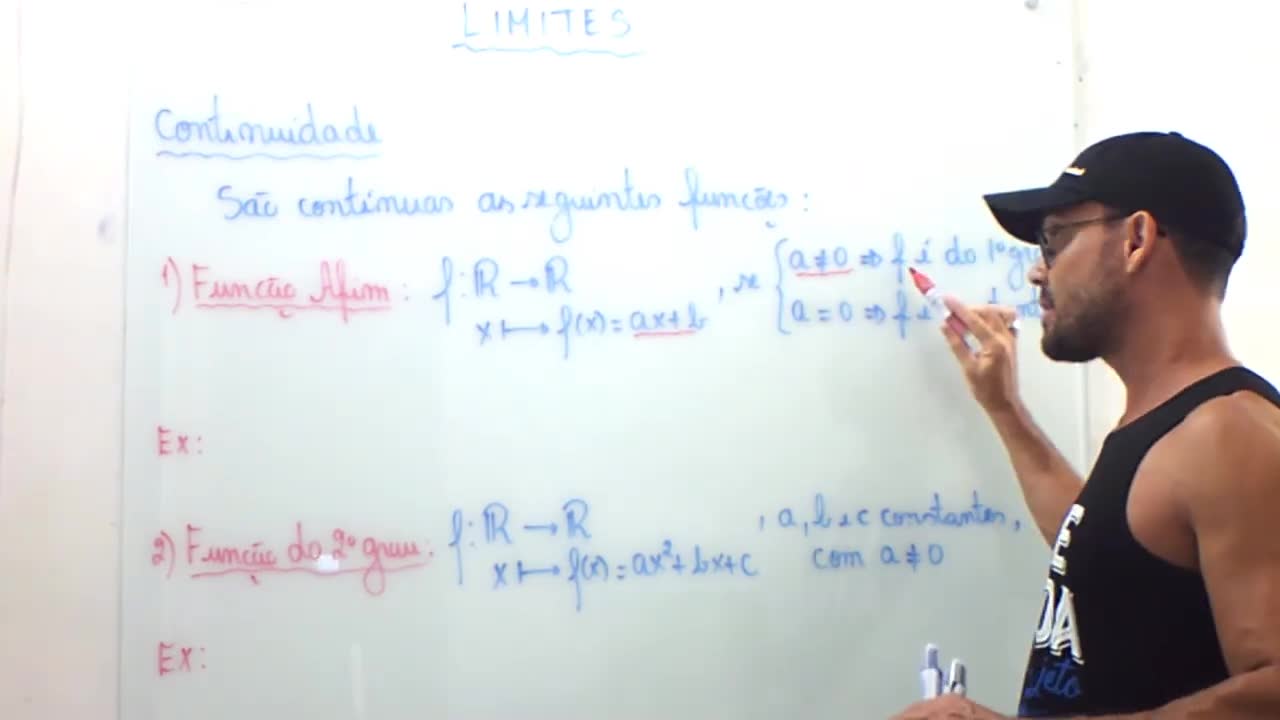 LIMITES
Continuidade
São contínuas as seguintes funções:
1) Função Afim: f: ℝ → ℝ
x ⟼ f(x) = ax+b
, se { a ≠ 0 ⇒ f é do 1º
a = 0 ⇒ f é
Ex:
2) Função do 2º grau: f: ℝ → ℝ
x ⟼ f(x) = ax²+bx+c
, a, b e c constantes,
com a ≠ 0
Ex: